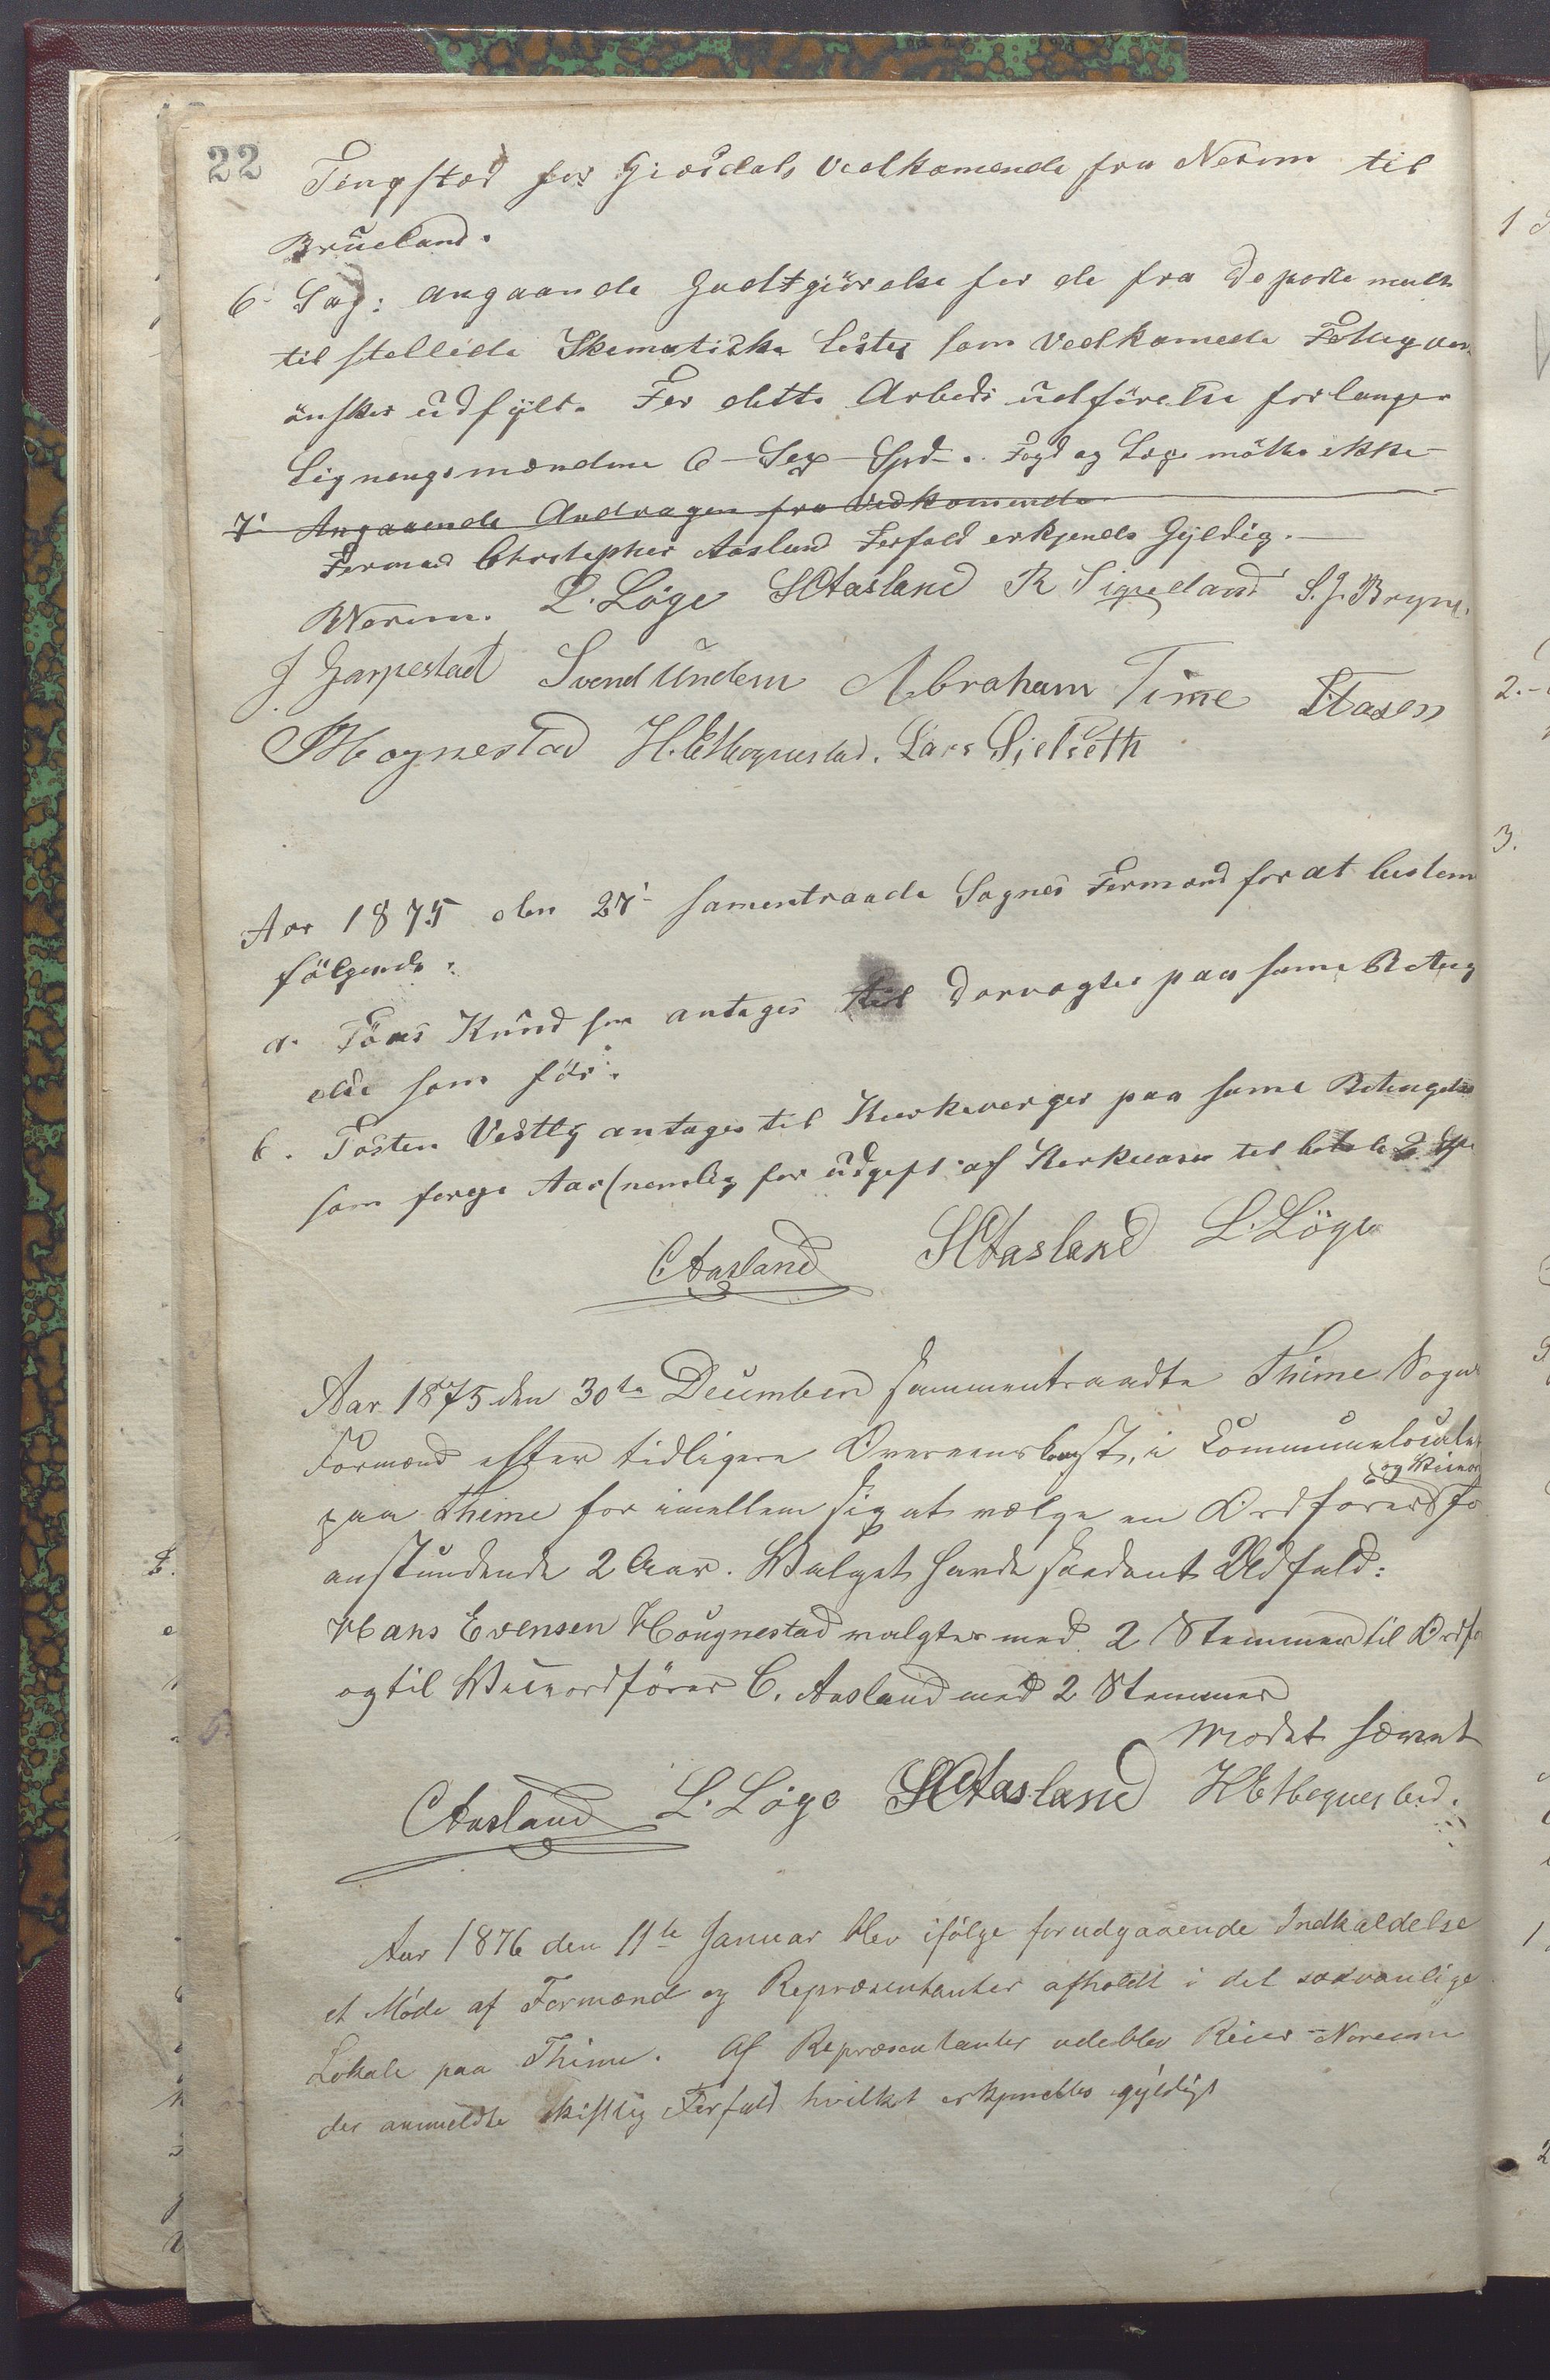 22
Tingsted for Giesdals Vedkomende fra Nerem til
Brueland.
6. Sag: angaaende Godtgiörelse for de fra Departe mente
til stellede Skematiske Lister som Vedkomede
önsker udfylt. For dette Arbeds udförelse forlanger
Ligningsmændene 6 - Sex - Spd. Fogd og Læge mötte ikke
7. Angaaende Andragen fra Vedkomende
Formand Christopher Aasland Forfald erkjendes Gyldig.
Nerem. L. Löge SCAasland R Sigveland S. J. Bryne.
J Garpestad Svend Undem Abraham Time
Hognestad H. E. Hognestad. Lars Sielseth
Aar 1875 den 27 samentraade Sognes Formænd for at bestem
fölgende:
a. Töns Knudsen antages til Dørvogter paa same Beting
else som för.
b. Tosten Vestly antages til Kierkeverger paa same Betingelse
som forge Aar (nemlig for udgeft af Kerkecasse til betale 2 Sp
CAasland SCAasland L. Löge
Aar 1875 den 30te December sammentraadte Thime Sogne
Formænd efter tidligere Overenskomst, i Communelocalet
og Viceor
paa Thime for imellem sig at vælge en Ordförer fo
anstundende 2 Aar. Valget havde saadant Udfald:
Hans Evensen Hougnestad valgtes med 2 Stemmer til Ordfö
og til Viceordförer C. Aasland med 2 Stemmer
Mødet hævet
CAasland L. Löge SCAasland HEHognestad.
Aar 1876 den 11te Januar blev ifölge forudgaaende Indkaldelse
et Möde af Formænd og Repræsentanter afholdt i det sædvanlige
Lokale paa Thime. Af Repræsentanter udeblev Reier Nereem
der anmeldte skiftlig Forfald hvilket erkjendtes gyldigt